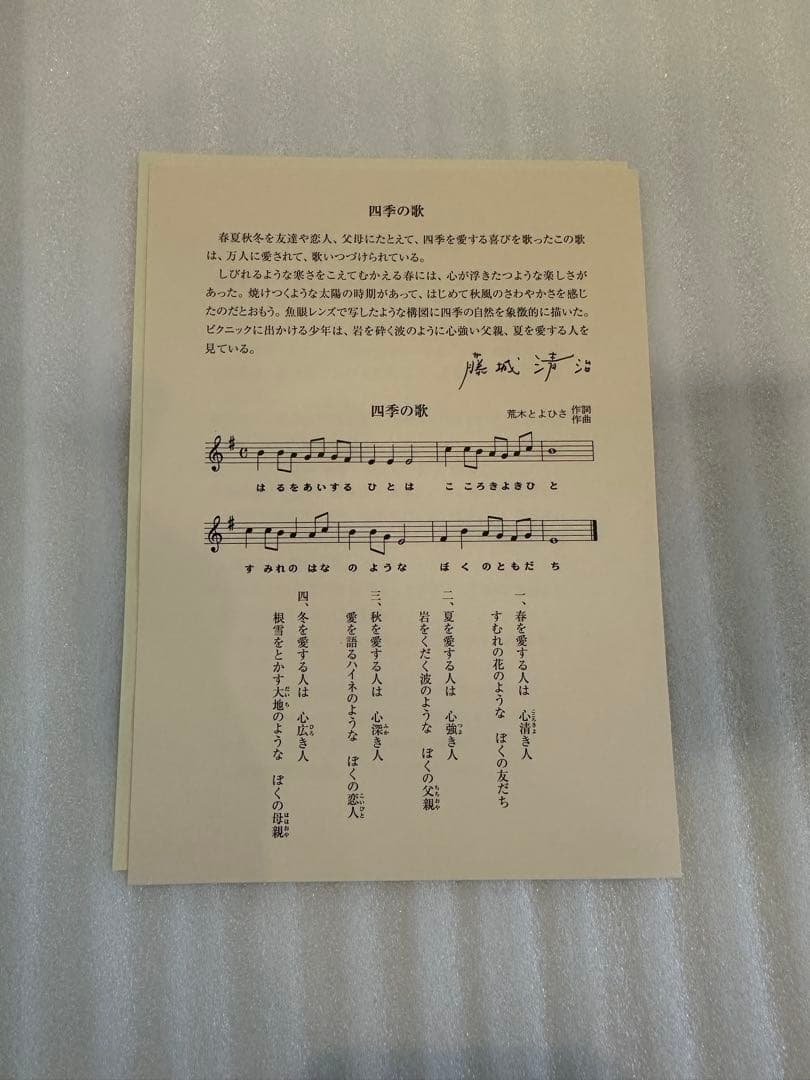 四季の歌
春夏秋冬を友達や恋人、父母にたとえて、四季を愛する喜びを歌ったこの歌
は、万人に愛されて、歌いつづけられている。
しびれるような寒さをこえてむかえる春には、心が浮きたつような楽しさが
あった。焼けつくような太陽の時期があって、はじめて秋風のさわやかさを感じ
たのだとおもう。魚眼レンズで写したような構図に四季の自然を象徴的に描いた。
ピクニックに出かける少年は、岩を砕く波のように心強い父親、夏を愛する人を
見ている。
藤城清治
四季の歌
荒木とよひさ 作詞 作曲
はるをあいする ひとは こころきよきひと
すみれの はな の ような ぼくのともだち
一、春を愛する人は 心清き人
すむれの花のような ぼくの友だち
二、夏を愛する人は 心強き人
岩をくだく波のような ぼくの父親
三、秋を愛する人は 心深き人
愛を語るハイネのような ぼくの恋人
四、冬を愛する人は 心広き人
根雪をとかす大地のような ぼくの母親